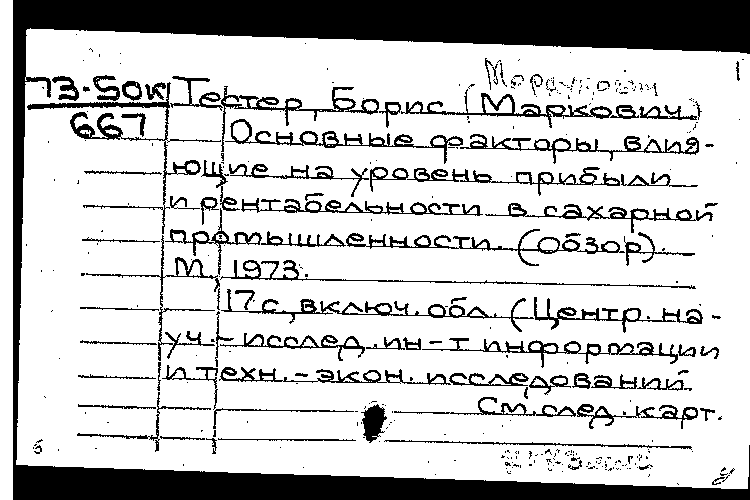 73-50к Тестер, Борис (Маркович.)
667 Основные факторы, влия-
ющие на уровень прибыли
и рентабельности в сахарной
промышленности. (Обзор).
М, 1973.
17 с., включ. обл. (Центр. на-
уч.-исслед. ин-т информации
и техн.-экон. исследований.
См. след. карт.